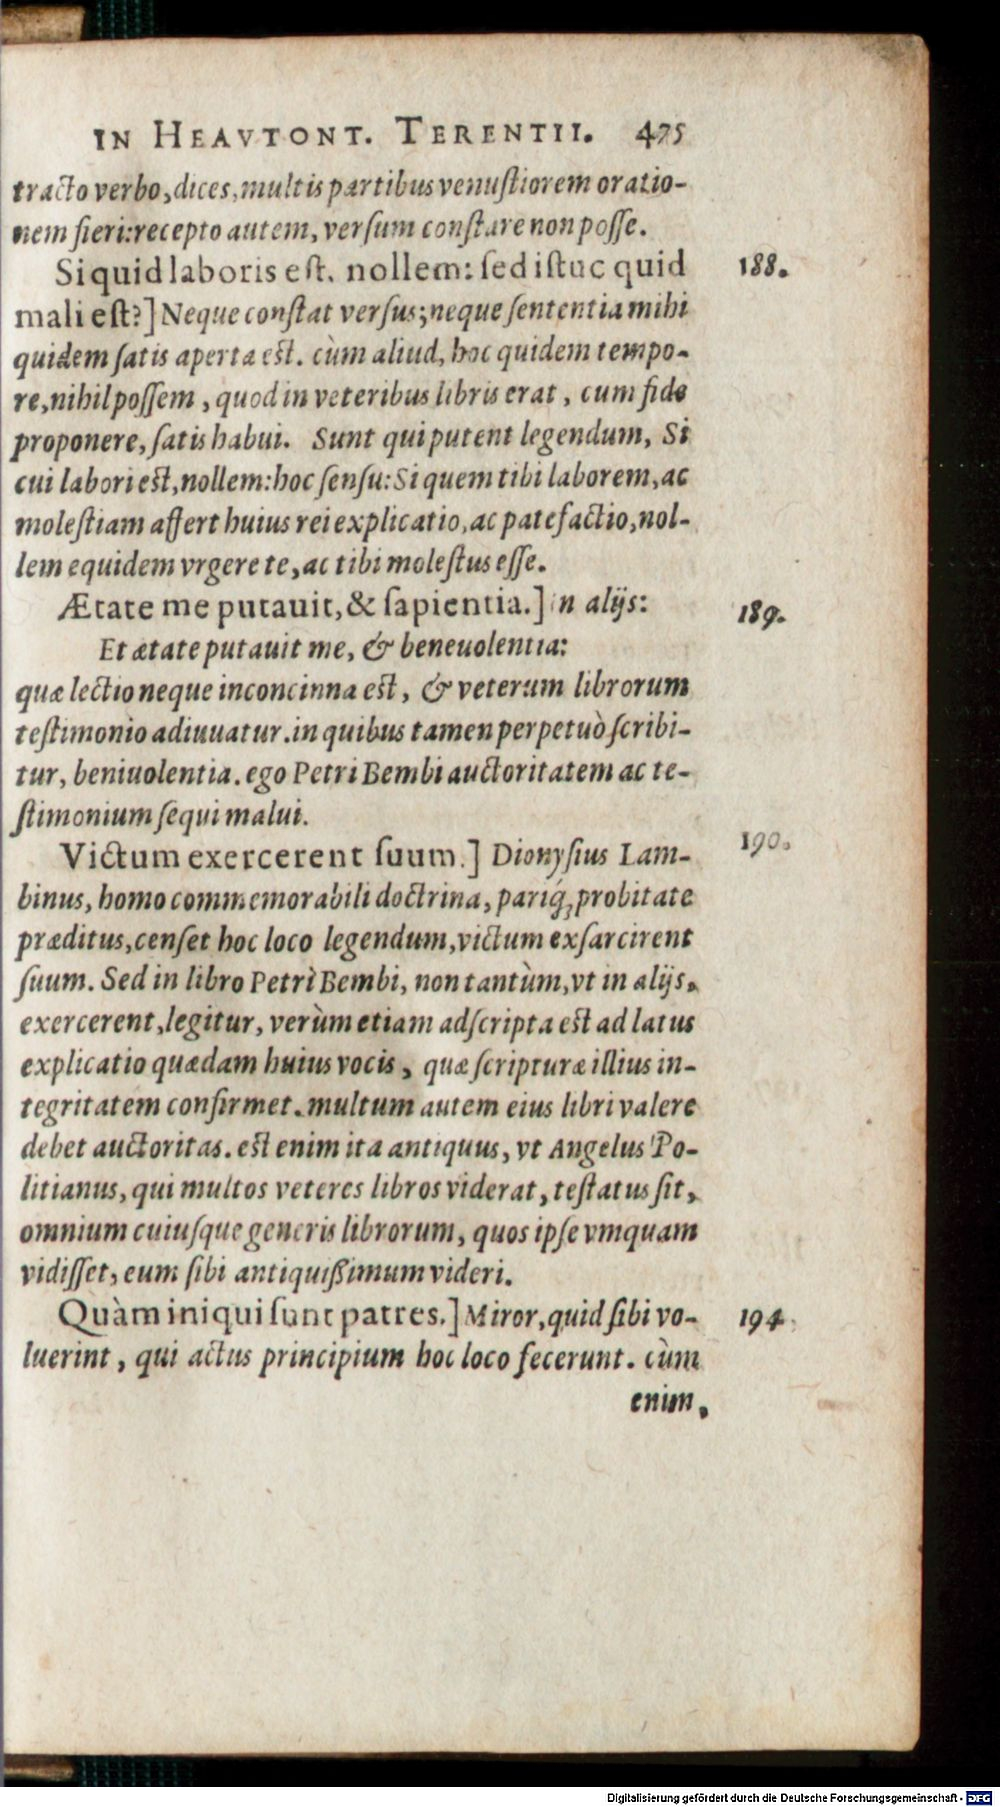 IN HEAVTONT. TERENTII. 475
tracto verbo, dices, multis partibus venuſtiorem oratio-
nem fieri: recepto autem, verſum conſtare non poſſe.
Si quid laboris eſt. nollem: ſed iſtuc quid 188.
mali eſt?] Neque conſtat verſus; neque ſententia mihi
quidem ſatis aperta eſt. cùm aliud, hoc quidem tempo-
re, nihil poſſem, quod in veteribus libris erat, cum fide
proponere, ſatis habui. Sunt qui putent legendum, Si
cui labori eſt, nollem: hoc ſenſu: Si quem tibi laborem, ac
moleſtiam affert huius rei explicatio, ac patefactio, nol-
lem equidem vrgere te, ac tibi moleſtus eſſe.
Ætate me putauit, & ſapientia.] in alijs: 189.
Et ætate putauit me, & beneuolentia:
quæ lectio neque inconcinna eſt, & veterum librorum
teſtimonio adiuuatur. in quibus tamen perpetuò ſcribi-
tur, beniuolentia. ego Petri Bembi auctoritatem ac te-
ſtimonium ſequi malui.
Victum exercerent ſuum.] Dionyſius Lam- 190.
binus, homo commemorabili doctrina, pariq́; probitate
præditus, cenſet hoc loco legendum, victum exſarcirent
ſuum. Sed in libro Petri Bembi, non tantùm, vt in alijs,
exercerent, legitur, verùm etiam adſcripta eſt ad latus
explicatio quædam huius vocis, quæ ſcripturæ illius in-
tegritatem confirmet. multum autem eius libri valere
debet auctoritas. eſt enim ita antiquus, vt Angelus Po-
litianus, qui multos veteres libros viderat, teſtatus ſit,
omnium cuiuſque generis librorum, quos ipſe vmquam
vidiſſet, eum ſibi antiquißimum videri.
Quàm iniqui ſunt patres.] Miror, quid ſibi vo- 194.
luerint, qui actus principium hoc loco fecerunt. cùm
enim,
Digitalisierung gefördert durch die Deutsche Forschungsgemeinschaft - DFG